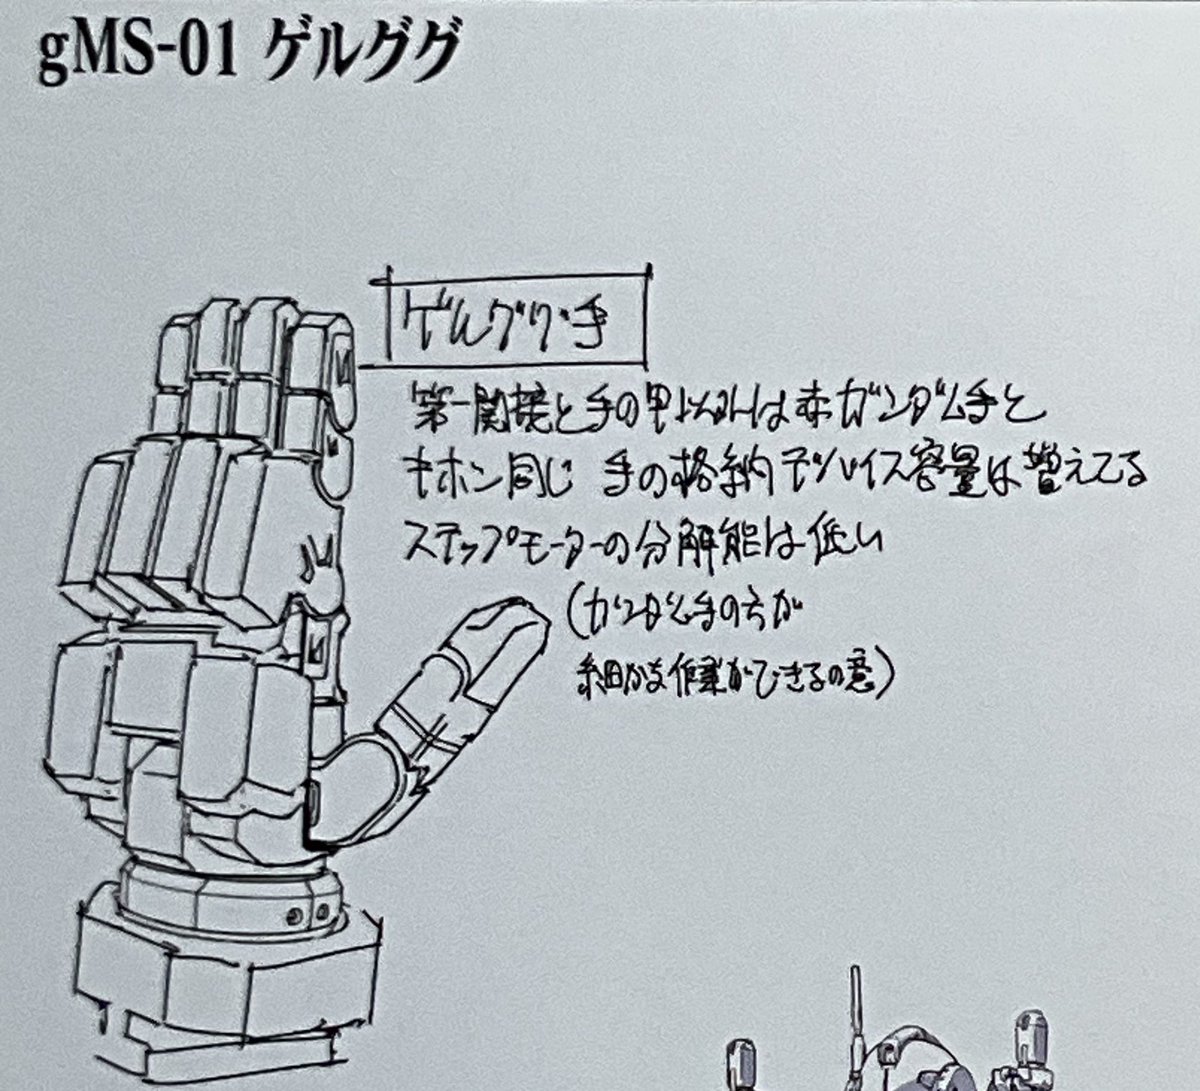 gMS-01 ゲルググ
ゲルググ・手
第一関接と手の甲以外は赤ガンダム手と
キホン同じ 手の格納デバイス容量は増えてる
ステップモーターの分解能は低い
(ガンダム手の方が
細かな作業ができるの意)